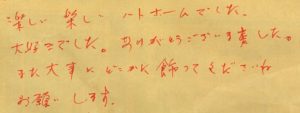 楽しい 楽しい ハートホームでした。
大好きでした。ありがとうございました。
また大事にどこかに飾ってくださいね
お願いします。